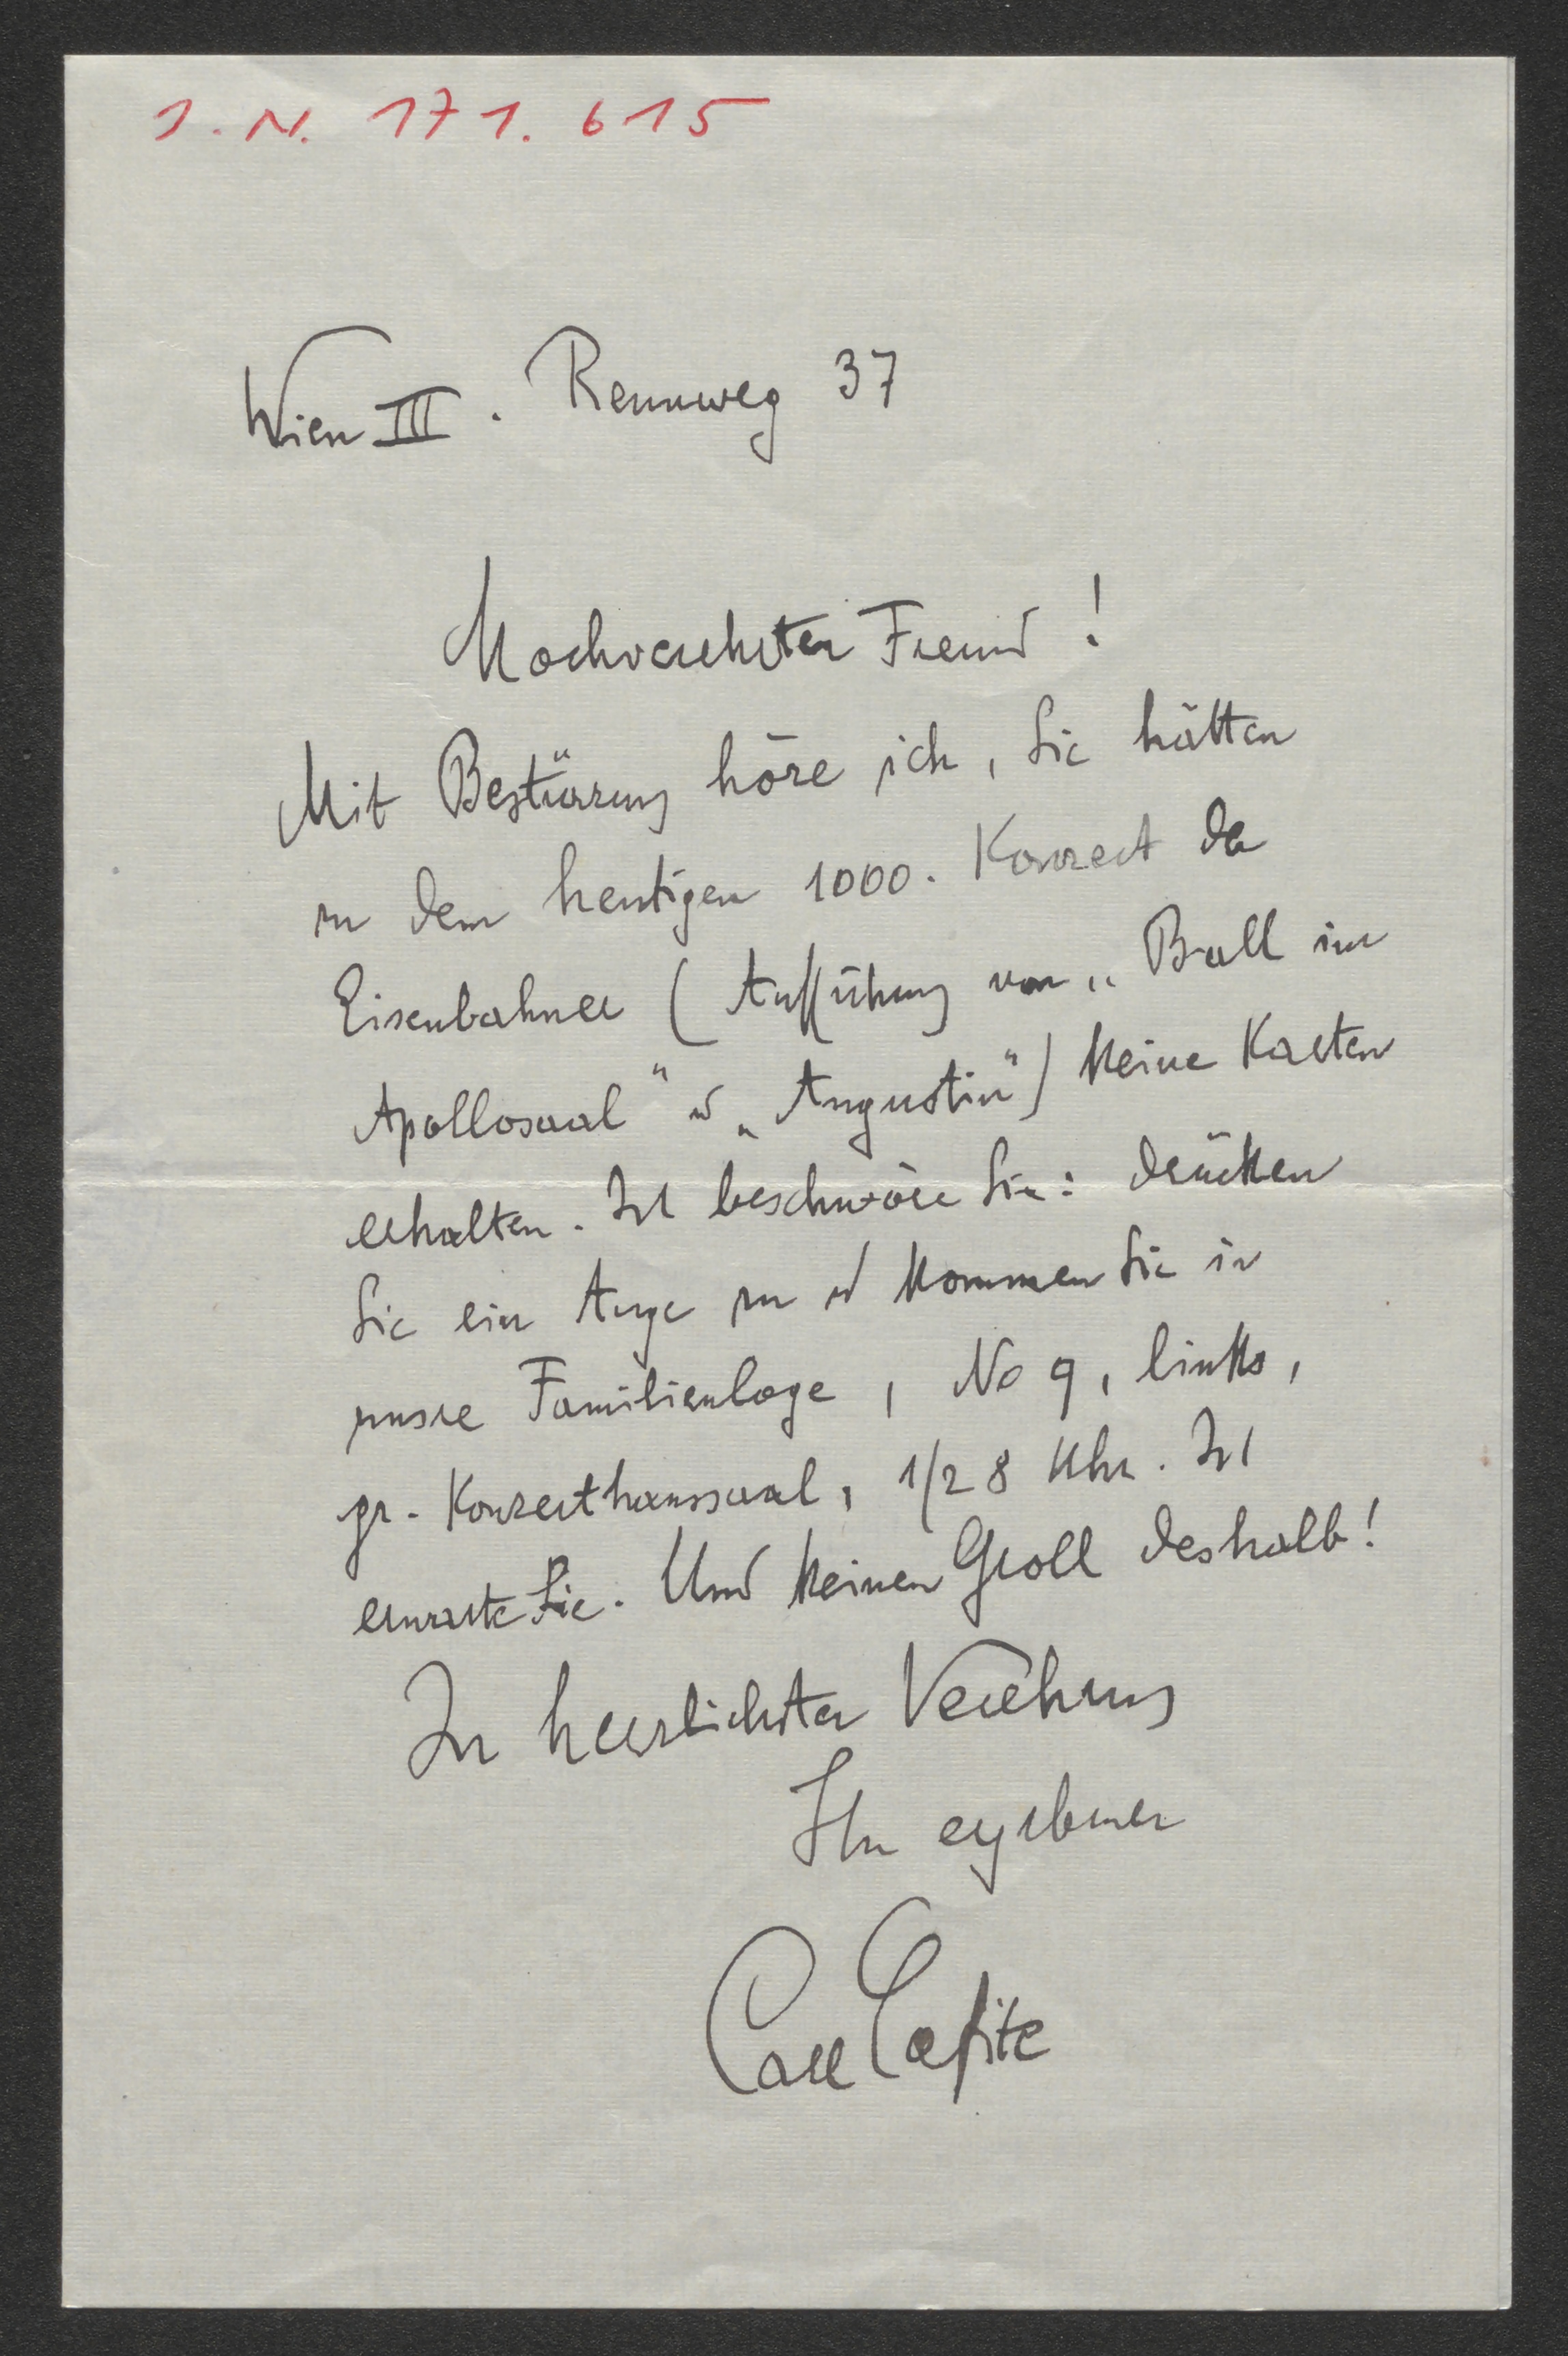 I. N. 171.615
Wien III. Rennweg 37
Hochverehrter Freund!
Mit Bestürzung höre ich, Sie hätten
zu dem heutigen 1000. Konzert der
Eisenbahner (Aufführung von „Ball im
Apollosaal" u „Augustin") keine Karten
erhalten. Ich beschwöre Sie: drücken
Sie ein Auge zu u kommen Sie in
unsre Familienloge, No 9, links,
gr. Konzerthaussaal, 1/2 8 Uhr. Ich
erwarte Sie. Und keinen Groll deshalb!
In herzlichster Verehrung
Ihr ergebener
Carl Lafite